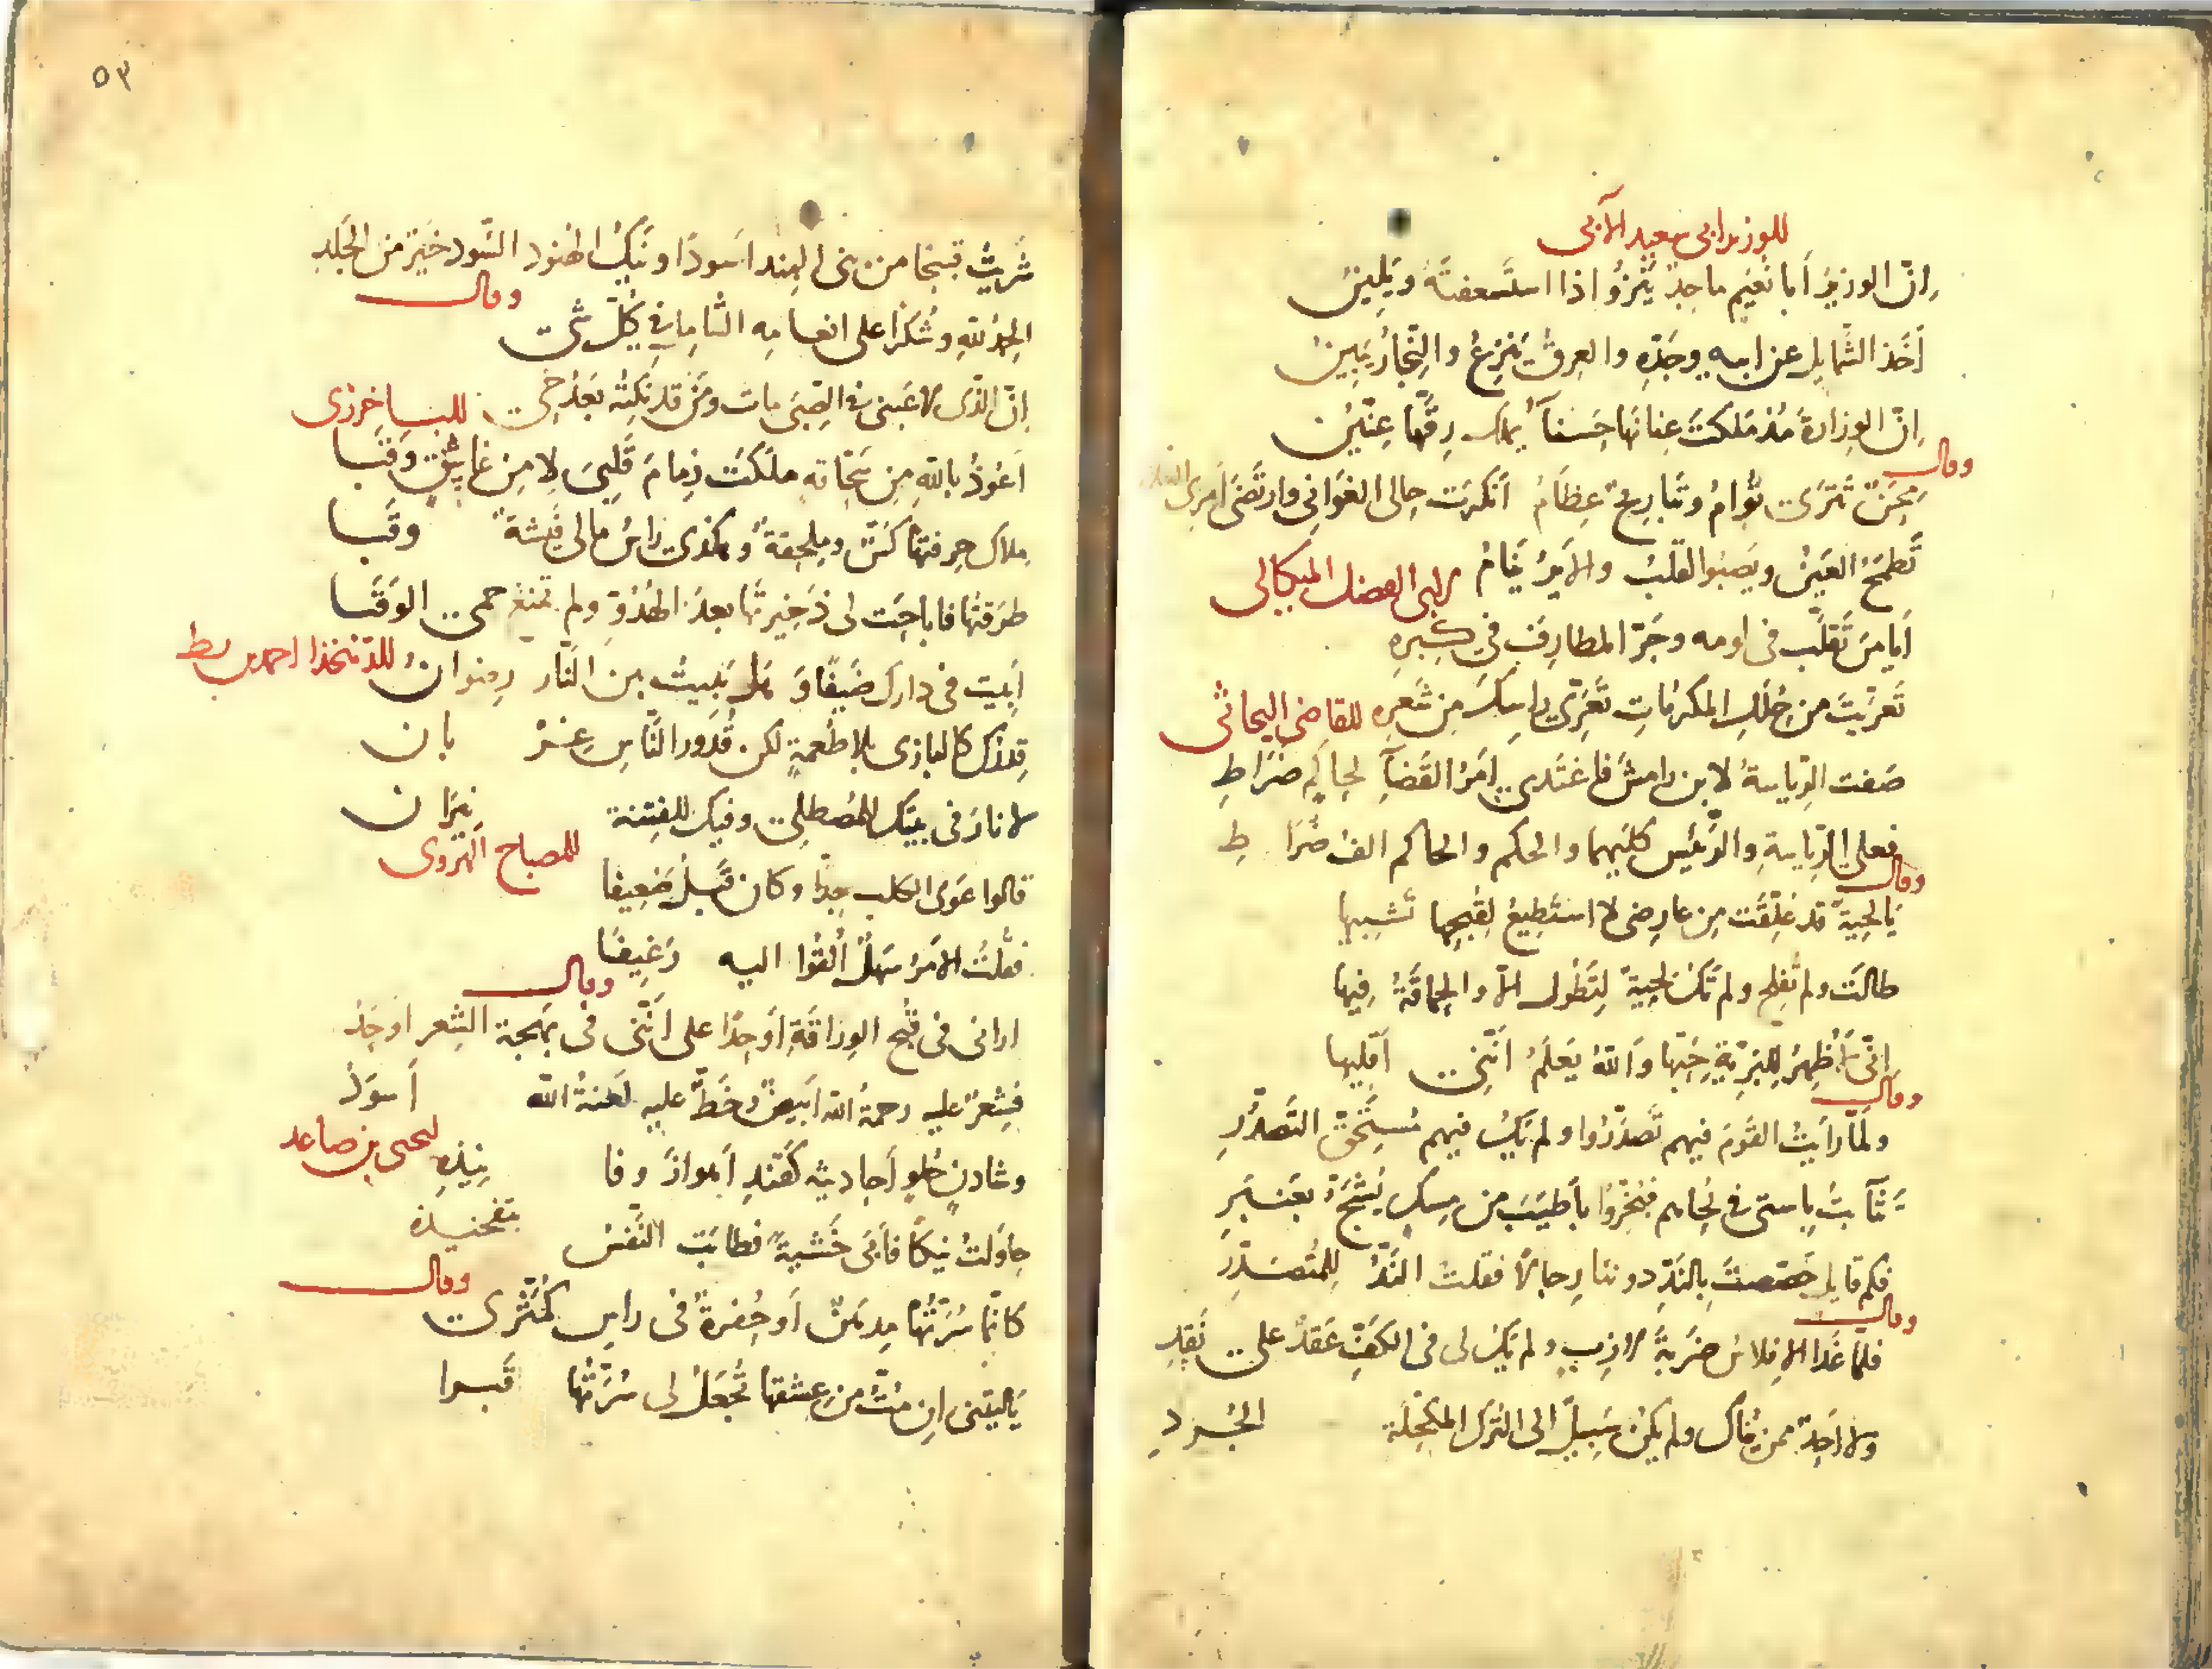 للوزير ابى سعيد الآبى
اِنّ الوزيرَ أبا نُعَيم ماجدٌ يَنْزُو اذا استَسعفتَهُ ويَلِينُ
أخَذ الشَّمايلَ عن ابيه وجَدِّهِ والعِرقُ يَنزِعُ والنِّجارُ يَبِينُ
اِنّ الوِزارةَ مُذ مَلكتَ عِنانَها حَسنآ يملك رِقَّها عِنّينُ
وقال
مِحَنٌ تَترَى تُؤامُ وتَبارِيحٌ عِظَامُ أنكرَت حالى الغَوانِى وارتَضَى امرِى
تَطمَحُ العَينُ ويَصبُوا القَلبُ والأيرُ يَنامُ لابى الفضل الميكالى
أيا من تَقلّب فى اومه وجَرّ المطارِفَ فى كِبرِهِ
تَعرّيتَ من حُلَلِ المكرُماتِ تَعَرِّىَ راسِكَ مِن شَعرِهِ للقاضى البحاثى
صَفت الرِّياسةُ لابن رامشَ فاغتَدى امرُ القَضآءِ لحاكمٍ ضَرّاطِ
فعلى الرِّياسةِ والرَّئيس كلَيهما والحكم والحاكم الف ضُرَا طِ
وقال
يَالِحيةً قد عَلِقَت مِن عارِضى لا استَطِيعُ لِقُبحِها تَشبِيها
طالَت ولم تُفلح ولم تَكُ لِحيةٌ لِتَطُول الا والحِماقَةُ فِيها
اِنّى لأُظهِرُ لِلبَرِيّةِ حُبَّها وَاللهُ يَعلَمُ انَّنِى أَقلِيها
وقال
ولمّا رأيتُ القَومَ فيهم تَصدَّرُوا ولم يَكُ فيهم مُستَحِقُّ التَّصَدُّرِ
تَثآءبتُ باستى فى لِحاهم فبُخِّرُوا بأطيَبَ من مِسكٍ يُشَجُّ بعَنبَرِ
فكم قايلٍ خصّصتَ بالنَدِّ دوننا رِجالاً فقلتُ النَدُّ لِلمُتَصَدِّرِ
وقال
فلمّا غَدا الافلاسُ ضَربَةَ لازبٍ ولم يَكُ لى فى الكفّ عَقدٌ على نَقدِ
ولا احدٌ ممن يُناك ولم يكُن سَبِيلٌ الى التُركِ المكحّلة الجُردِ
٥٣
شَرَيتُ قبيحًا من بنى الهند اسودًا ونَيكُ الهُنُود السُّود خَيرٌ من الجَلدِ
وقال
الحمدُ للهِ وشُكرًا على انعامِه الشامِل فى كُلّ شَى
اِنّ الّذى لاعَبَنى فى الصِّبَى مات ومَن قد نِكتُه بَعدُ حَى للباخرزى
أعُوذُ بالله مِن سَحّاقةٍ ملَكَت زِمامَ قَلبِىَ لا مِن غاسِقٍ وَقَبا
مِلاك حِرفتِها كُسٌّ ومِلحِفةٌ وهكذى راسُ مالى فَيشةٌ وقَبا
طرَقتُها فاباحَت لى ذَخِيرتَها بعدَ الهُدُوِّ ولم تمنع حمى الوَقَبا
أبِيت فى دارك ضَيفًا وَهَل يَبِيتُ بين النّار رِضوانُ
قِدرُكَ كالبازى بلا طُعمةٍ لكن قُدُور النّاسِ غِربان
لا نارَ فى بيتك للمُصطَلِى وفيك للفِتنة نِيرَان
للمصباح الهَروى
قالوا عَوَى الكلب جِدًّا وكان قبلُ ضَعِيفا
فقُلتُ الأمرُ سَهلٌ ألقُوا اليه رَغِيفًا
وقال
ارانى فى قُبح الوِراقَةِ أوحدًا على أنّنى فى بَهجة الشِّعر أوحَدُ
فشِعرٌ عليه رحمةُ الله ابيضُ وخَطٌّ عليه لعنةُ الله أسوَدُ
ليحيى بن صاعد
وشادنٍ حُلوٍ أحاديثُه كقَندِ أهوازَ وفانِيذِهِ
حاوَلتُ نيكًا فأبى خَشيةً فطابَت النّفسُ بتفخيذِهِ
وقال
كانّما سُرّتُها مدهَنٌ أو حُفرةٌ فى راسِ كُمَّثرى
يَاليتنى اِن مُتُّ من عِشقها تُجعَلُ لى سُرّتُها قَبرا